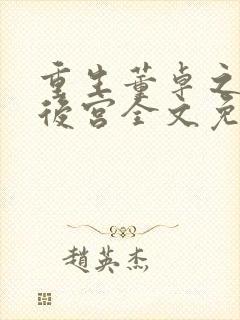 重生董卓之
後宮全文免
趙英杰